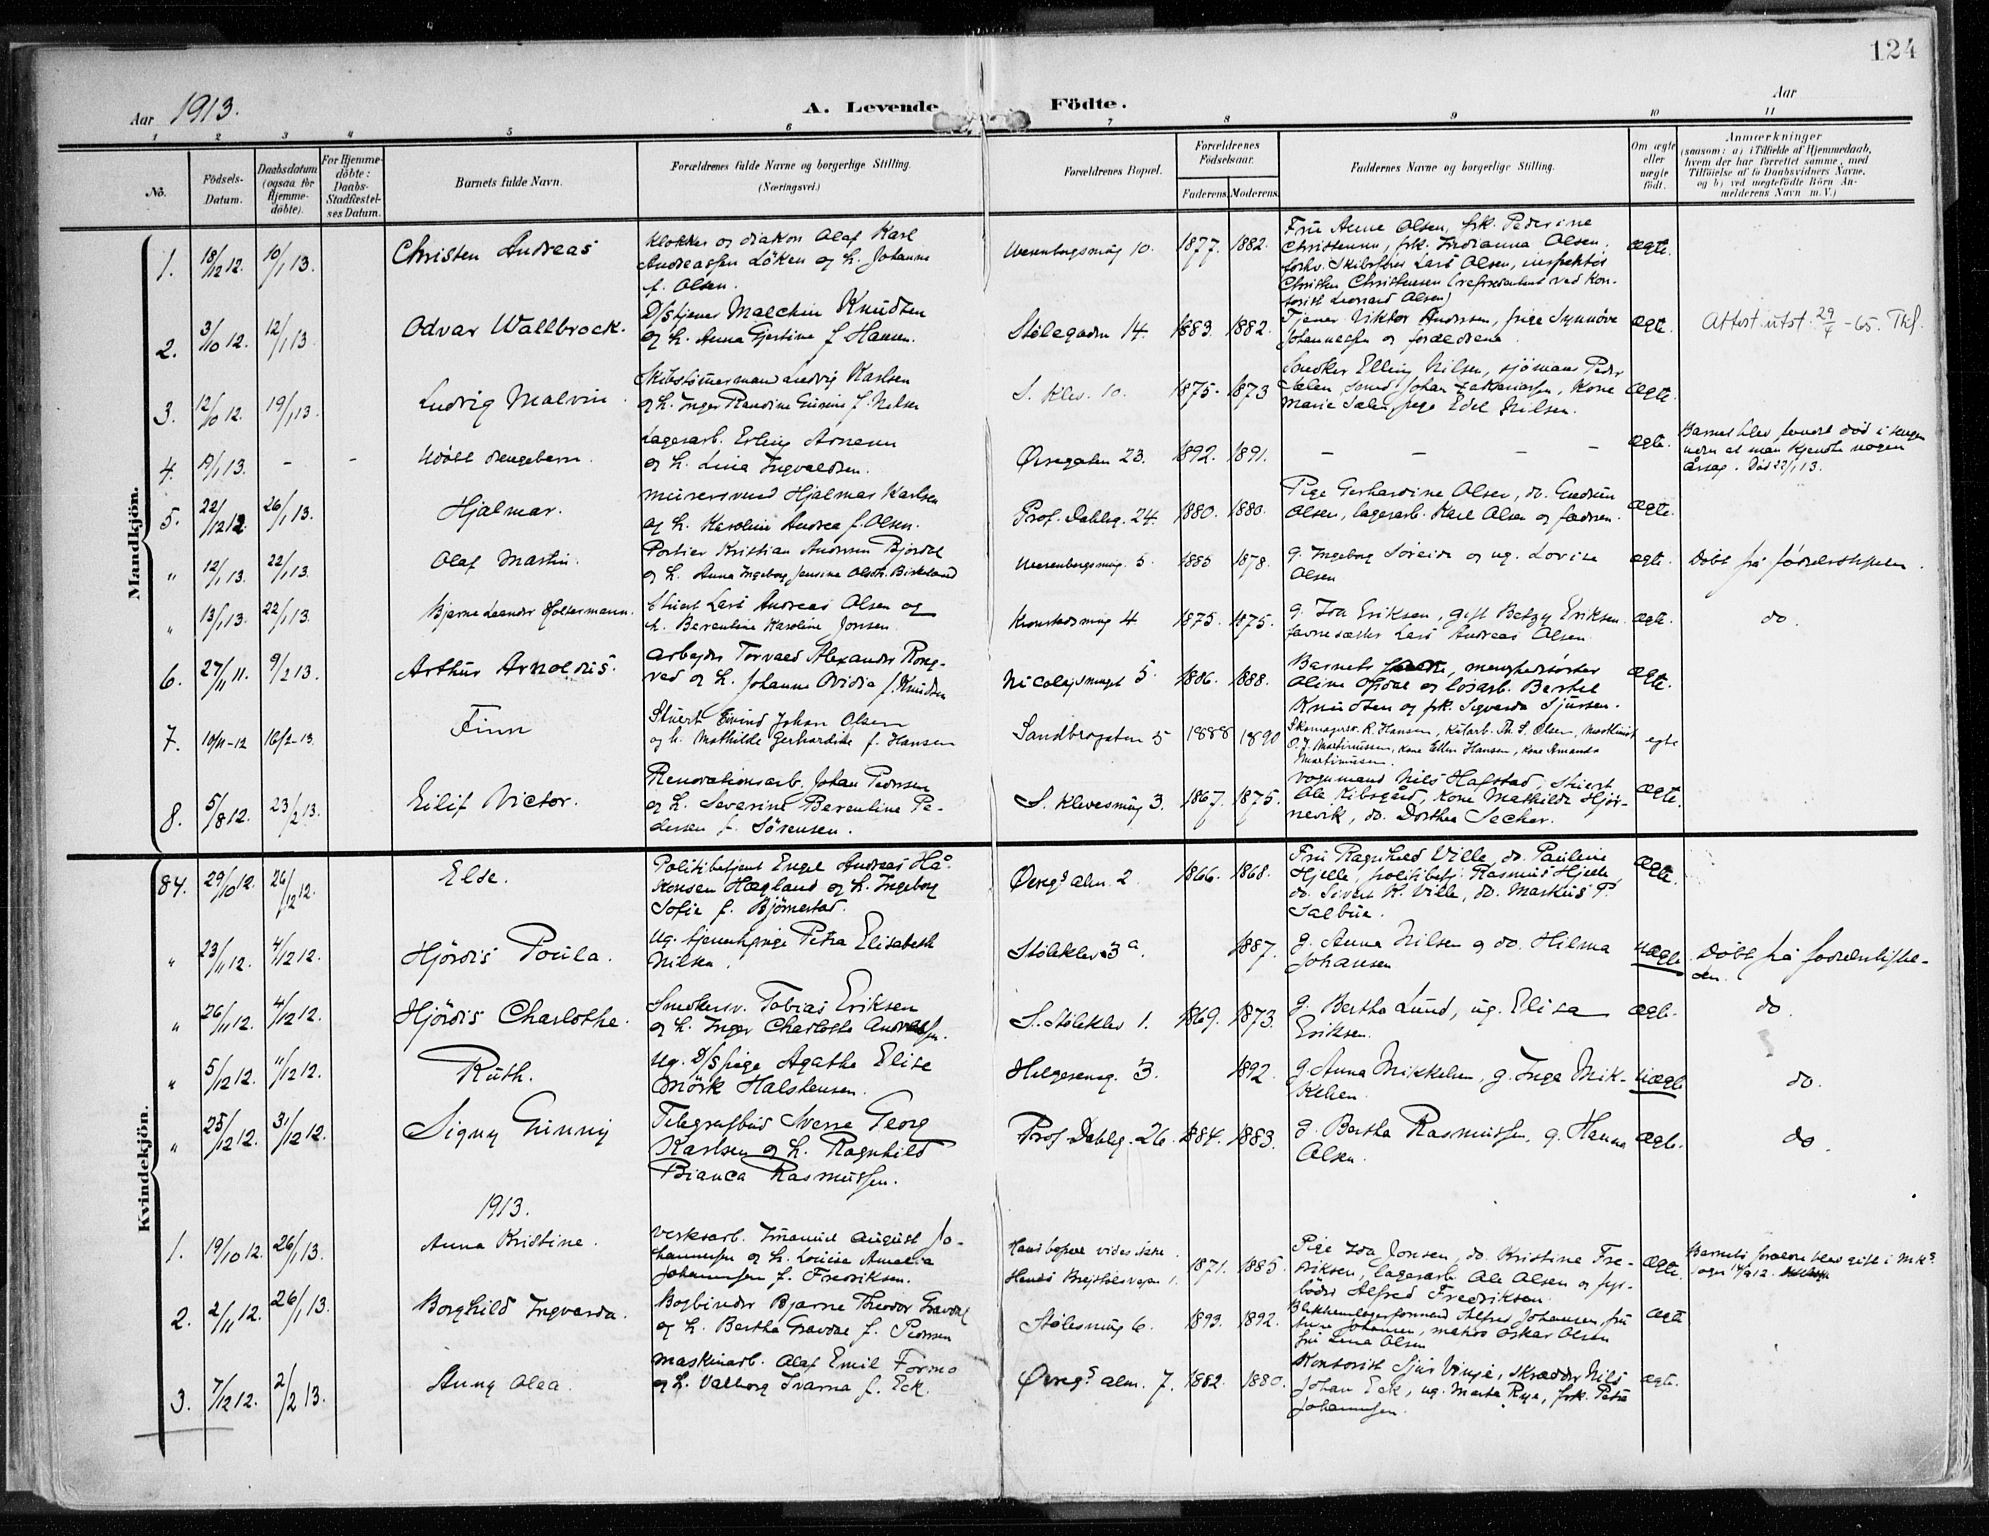 124
Aar 1913.
A. Levende Födte.
Aar
1 2 3 4 5 6 7 8 9 10 11
No.
Födsels-Datum.
Daabsdatum (ogsaa for Hjemme-döbte).
For Hjemme-döbte: Daabs-Stadfæstel-ses Datum.
Barnets fulde Navn.
Forældrenes fulde Navne og borgerlige Stilling. (Næringsvei.)
Forældrenes Bopæl.
Forældrenes Födselsaar.
Faderens. Moderens.
Faddernes Navne og borgerlige Stilling.
Om ægte eller uægte födt.
Anmærkninger
(saasom: a) i Tilfælde af Hjemmedaab,
hvem der har forrettet samme, med
Tilföielse af to Daabsvidners Navne,
og b) ved uegtefödte Börn An-
melderens Navn m. V.)
Mandkjön.
1. 18/12 12. 10/1 13. Christen Andreas
Klokker og diakon Olaf Karl
Andreassen Löken og h. Johanne
f. Olsen.
Wesenbergsmug 10. 1877. 1882.
Frü Anne Olsen, frk. Pederine
Christensen, frk. Indianna Olsen,
forhv. Skibsförer Lars Olsen, inspektör
Christen Christensen (repræsenteret ved Kon-
torist Leonard Olsen)
ægte.
2. 3/10 12. 12/1 13. Odvar Wallbrock.
D/Stjener Malchin Knüdsen
og h. Anna Gjertine f. Hansen.
Stölegaden 14. 1883. 1882.
Tjener Viktor Andersen, pige Synnöve
Johannessen og forældrene.
ægte.
Attest utst. 29/4 - 65. Thf.
3. 12/10 12. 19/1 13. Ludvig Malvin.
Skibstömmermand Ludvig Karlsen
og h. Inger Randine f. Nilsen
S. Klev. 10. 1875. 1873
Snedker Elling Nilsen, sjömand Peder
Sælen, Smed Johan Zakariassen, Kone
Marie Sælen, pige Edel Nilsen.
ægte.
4. 19/1 13. - - Udöbt drengebarn.
Lagerarb. Erling Arnesen
og h. Lina Ingvaldsen.
Øvregaten 23. 1892. 1891.
- - - -
ægte.
Barnet blev fundet död i sengen
uden at man kjendte nogen
årsag. Död 22/1 13.
5. 22/12 12. 26/1 13. Hjalmar.
Mürersvend Hjalmar Karlsen
og h. Karoline Andrea f. Olsen.
Prof. Dahlsg. 24. 1880. 1880.
Pige Gerhardine Olsen, do. Gudrün
Olsen, lagerarb. Karl Olsen og fadren.
ægte.
" 12/1 13. 22/1 13. Olaf Martin.
Portier Kristian Andersen Bjordal
og h. Anna Ingeborg Jensine Olsdtr. Birkeland
Wesenbergsmug. 5. 1885 1878.
g. Ingeborg Soreide og ug. Lovise
Olsen
ægte.
Döbt på födselsstiftelsen.
" 13/1 13. 22/1 13. Bjarne Leander Holtermann.
Stuert Lars Andreas Olsen og
h. Berentine Karoline Jonsen
Kronstadsmug 4 1875. 1875.
g. Ida Eriksen, gift Betzy Eriksen.
Lars Andreas Olsen
ægte.
do.
6. 27/11 11. 9/2 13. Arthur Arnoldüs.
Arbeider Torvald Alexander Rong-
ved og h. Johanne Ovidia f. Knüdsen
Nicolaysmuget 5. 1886. 1888.
Barnets, menighedssöster
Oline Opdal og losarb. Bertel
Knüdsen og frk. Sigvarda Sjürsen.
ægte.
7. 10/11-12 16/2-13. Finn
Stüert Eivind Johan Olsen
og h. Mathilde Gerhardine f. Hansen
Sandbrogaten 5 1888 1890
Skomagersv. R. Hansen, Th. S. Olsen, maskinist
O. J. Martinussen, kone Ellen Hansen, kone Amanda
Martinussen.
egte
8. 5/8 12. 23/2 13. Eilif Victor.
Renovationsarb. Johan Pedersen
og h. Severine Berentine Pe-
dersen f. Sörensen.
S. Klevesmüg 3. 1867. 1875.
Vognmand Nils Hafstad, Stüert
Ole Kibsgård, Kone Mathilde Hjör-
nevik, do. Dorthea Secher.
ægte.
Kvindekjön.
84. 29/10 12. 26/12 12. Else.
Politibetjent Engel Andreas Hå-
konsen Hægland og h. Ingeborg
Sofie f. Björnestad.
Øvregs alm. 2. 1866. 1868.
Frü Ragnhild Ville, do. Pauline
Hjelle, politibetj. Rasmüs Hjelle
do. Sivert K. Ville, do. Markus P.
Salbüe.
ægte.
" 23/11 12. 4/12 12. Hjördis Poula.
Ug. tjenestepige Petra Elisabeth
Nilsen.
Stöleklev 3a. 1887.
g. Anna Nilsen og do. Hilma
Johansen
uægte.
Döbt på födselsstiftel-
sen.
" 26/11 12. 4/12 12. Hjördis Charlothe.
Snedkersv. Tobias Eriksen
og h. Inger Charlothe Andreassen.
S. Stöleklev 1. 1869. 1873.
g. Bertha Lund, ug. Elisa
Eriksen.
ægte.
do.
" 5/12 12. 11/12 12. Ruth.
Ug. D/S pige Agathe Elise
Mörk Halstensen.
Helgesensg. 3. 1892.
g. Anna Mikkelsen, g. Inga Mik-
kelsen.
uægte
do.
" 25/12 12. 31/12 12. Signy Gunny
Telegrafbüd Sverre Georg
Karlsen og h. Ragnhild
Bianca Rasmüssen.
Prof. Dahlsg. 26. 1884. 1883.
g. Bertha Rasmüssen, g. Hanna
Olsen.
ægte.
do.
1913.
1. 19/10 12. 26/1 13. Anna Kristine.
Verksarb. Imanuel August Jo-
hannessen og h. Louise Amalia
Johannessen f. Fredriksen.
Hans bopæl vides ikke.
Hendes 1. 1871. 1885.
Pige Ida Jonsen, do. Kristine Fre-
driksen, lagerarb. Ole Olsen og fyr-
böder Alfred Fredriksen.
ægte.
Barnets forældre blev gift i
2. 2/11 12. 26/1 13. Borghild Ingvarda.
Bogbinder Bjarne Theodor Gravdal
og h. Bertha Gravdal f. Pedersen
Stölesmüg 6. 1893. 1892.
Alfred Johansen, frü
Johansen, matros Oskar Olsen
frü Lina Olsen
ægte
3. 7/12 12. 2/2 13. Anny Olea.
Maskinarb. Olaf Emil Formo
og h. Valborg Ivarna f. Eck.
Øvregs alm. 7. 1882. 1880.
Kontorist Sjür Vinje, skrædder Nils
Johan Eck, ug. Marta Rye, frk. Petra
Johannessen.
ægte.